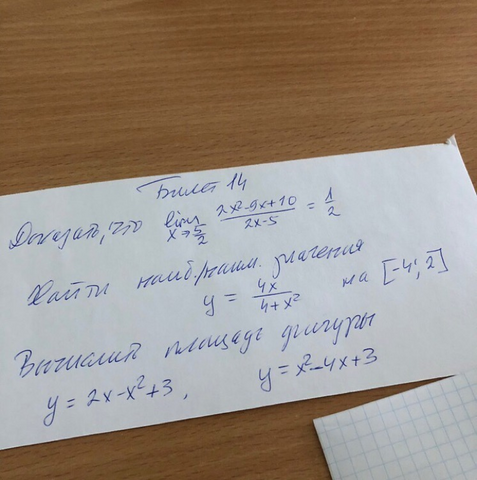 Билет 14
Доказать, что lim x→5/2 (2x²-9x+10)/(2x-5) = 1/2
Найти наиб./наим. значения
y = 4x/(4+x²) на [-4; 2]
Вычислить площадь фигуры
y = 2x-x²+3, y = x²-4x+3